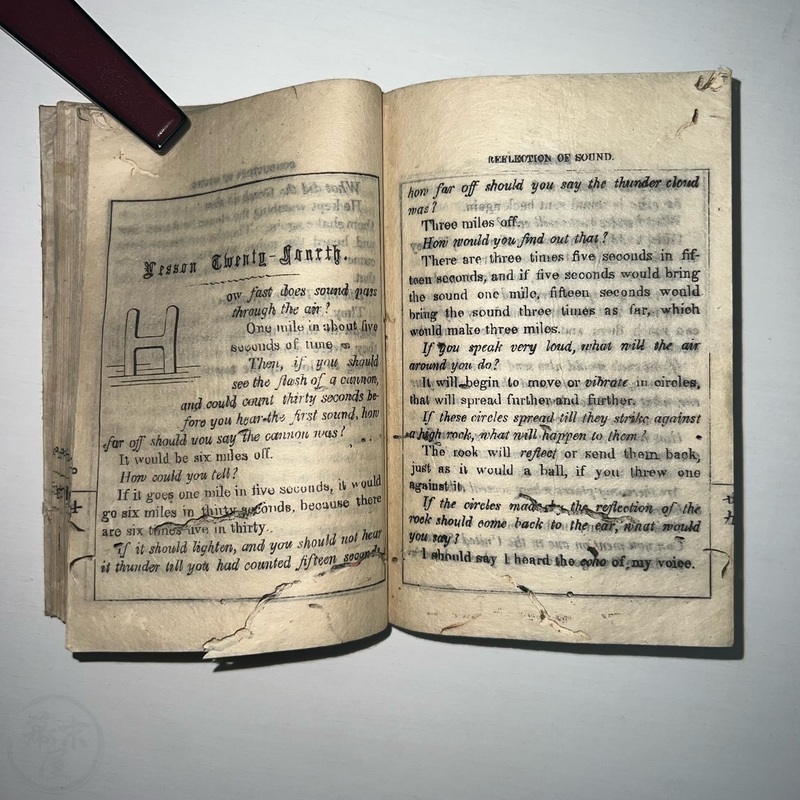 Lesson Twenty-Fourth.
How fast does sound pass
through the air?
One mile in about five
seconds of time
Then, if you should
see the flash of a cannon,
and could count thirty seconds be-
fore you hear the first sound, how
far off should you say the cannon was?
It would be six miles off.
How could you tell?
If it goes one mile in five seconds, it would
go six miles in thirty seconds, because there
are six times five in thirty.
If it should lighten, and you should not hear
it thunder till you had counted fifteen seconds,
REFLECTION OF SOUND.
how far off should you say the thunder cloud
was?
Three miles off.
How would you find out that?
There are three times five seconds in fif-
teen seconds, and if five seconds would bring
the sound one mile, fifteen seconds would
bring the sound three times as far, which
would make three miles.
If you speak very loud, what will the air
around you do?
It will begin to move or vibrate in circles,
that will spread further and further.
If these circles spread till they strike against
a high rock, what will happen to them?
The rock will reflect or send them back,
just as it would a ball, if you threw one
against it.
If the circles made the reflection of the
rock should come back to the ear, what would
you say?
I should say I heard the echo of my voice.
十九
幕末屋